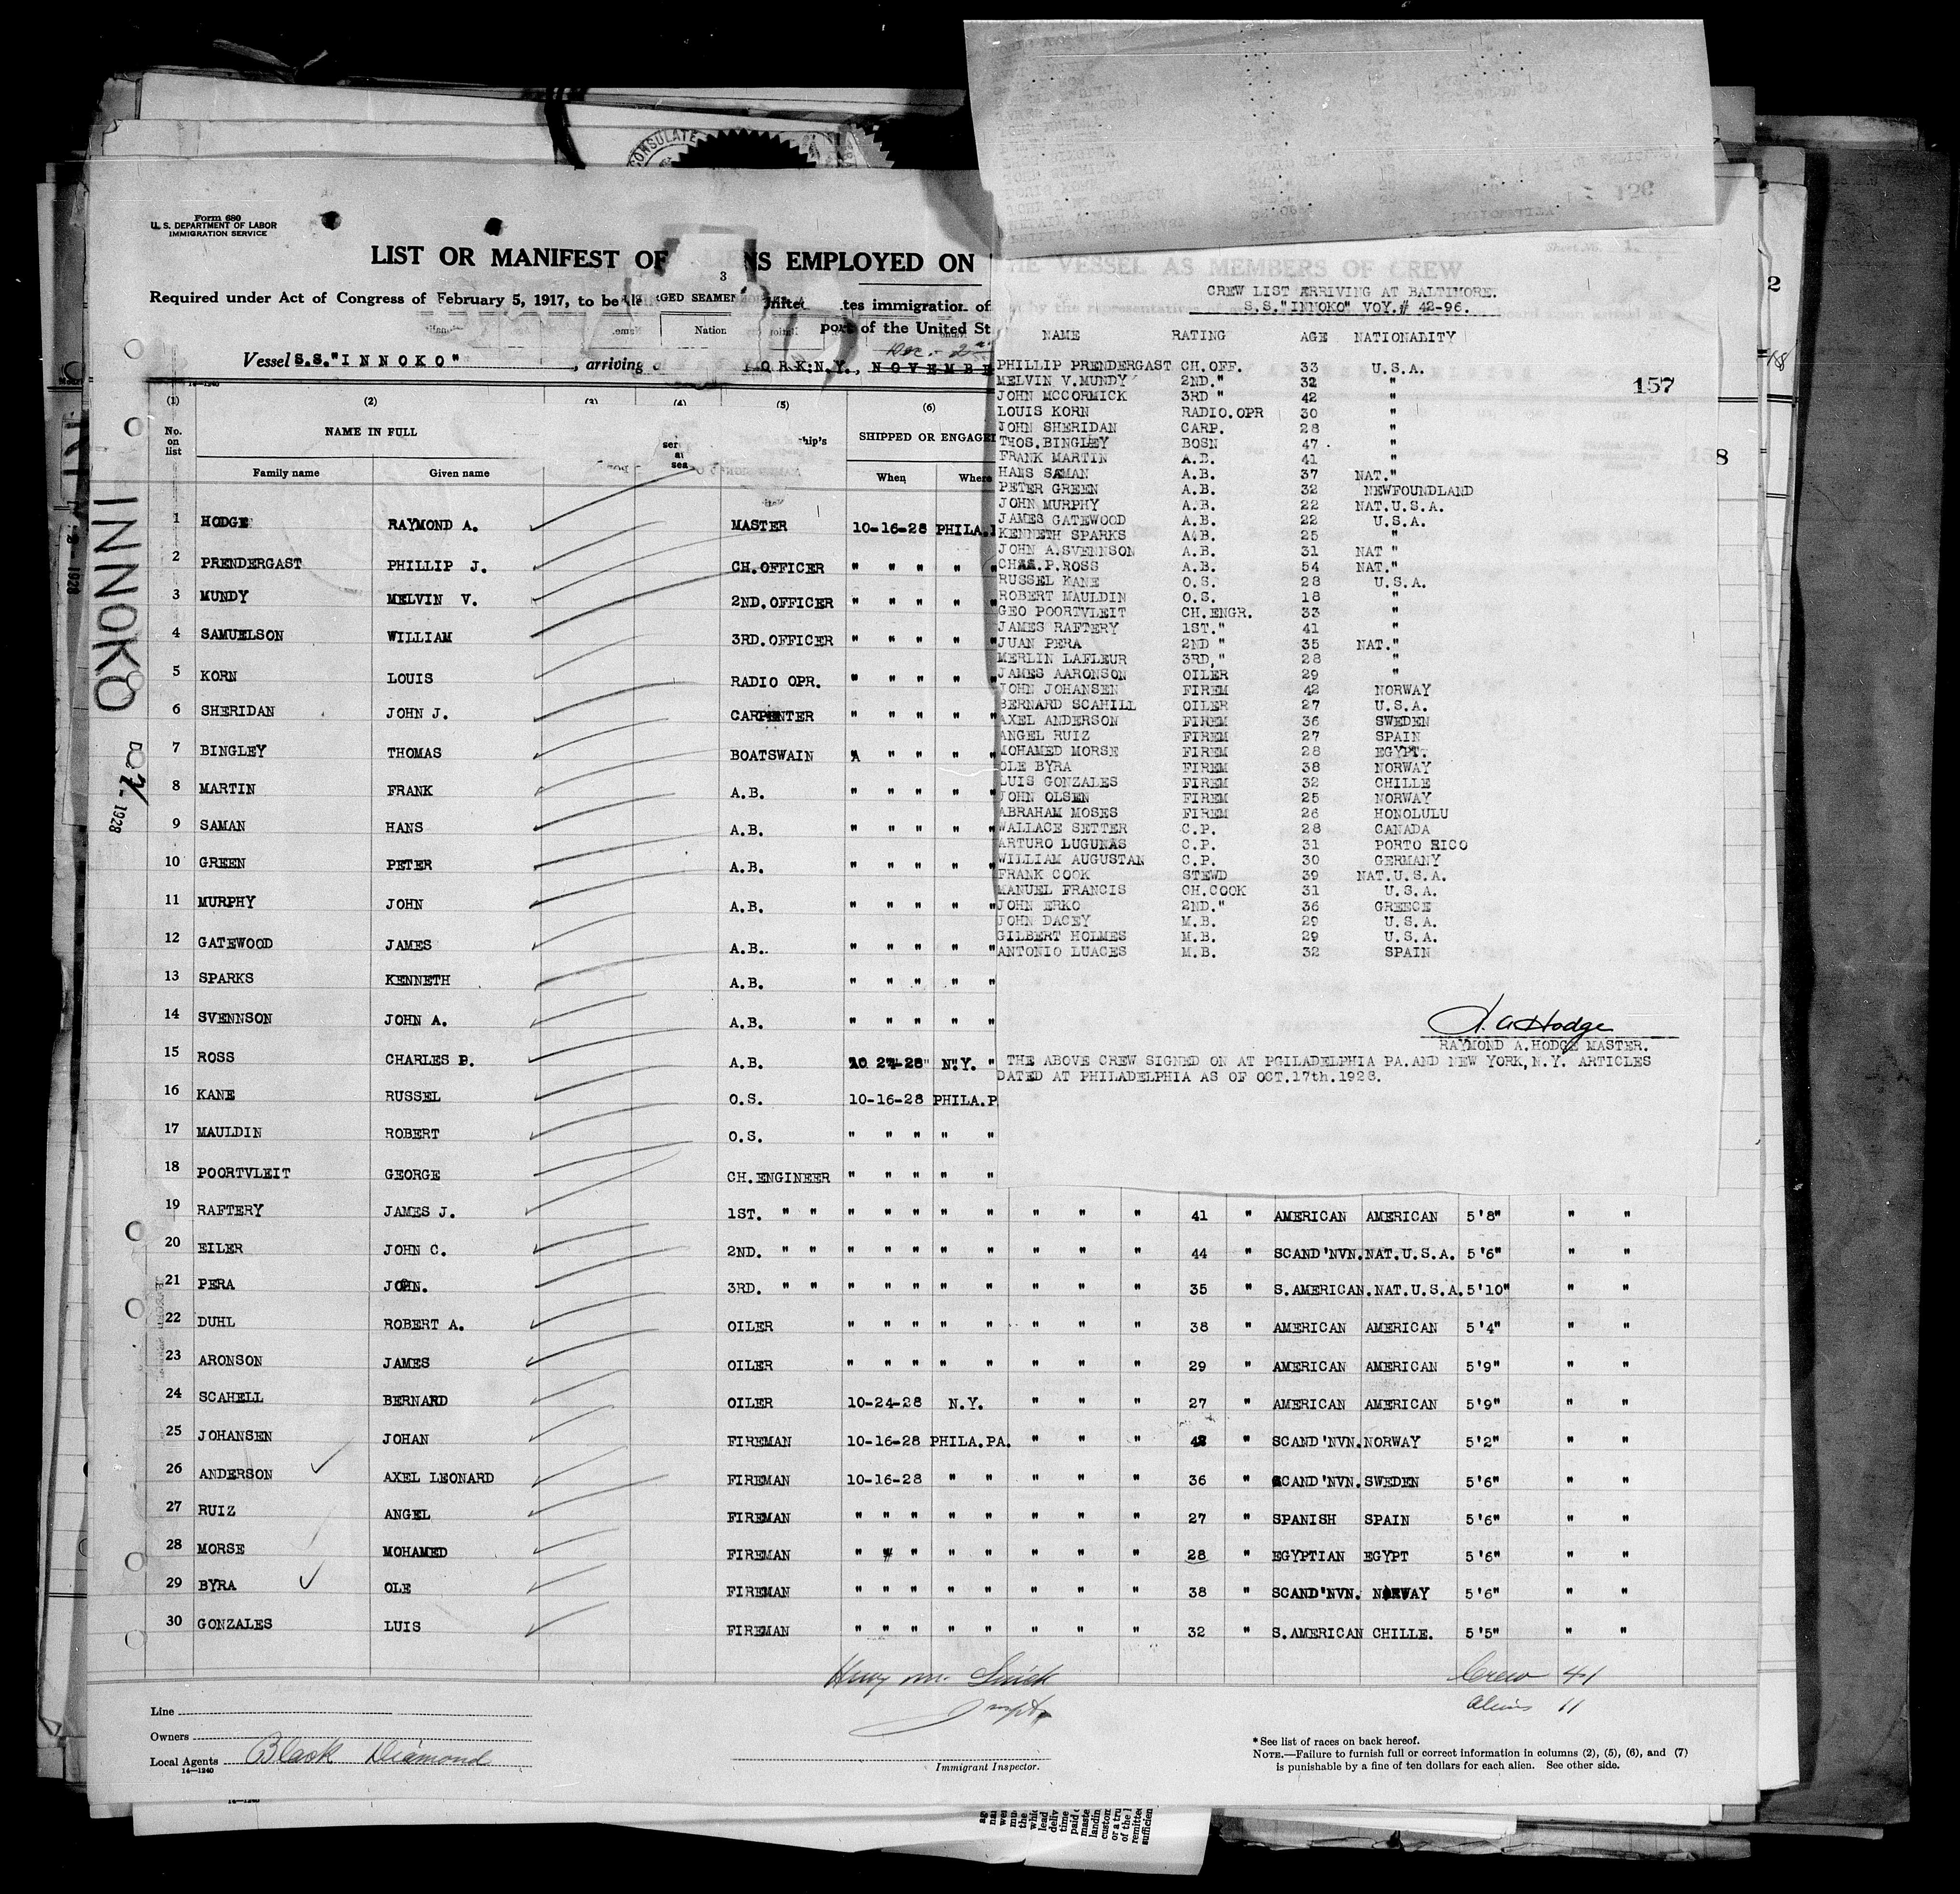 CONSULATE
Form 680
U. S. DEPARTMENT OF LABOR
IMMIGRATION SERVICE
LIST OR MANIFEST OF NS EMPLOYED ON THE VESSEL AS MEMBERS OF CREW
Required under Act of Congress of February 5, 1917, to be immigration of
port of the United St
3
GED SEAMEN
Nation
Vessel S.S."INNOKO", arriving YORK:N.Y., NOVEMBE
14—1240
(1) (2) (3) (4) (5) (6)
No. on list
NAME IN FULL
Family name Given name
ser at sea
hip's
SHIPPED OR ENGAGE
When Where
INNOKO
1928
1 HODGE RAYMOND A. MASTER 10-16-28 PHILA.
2 PRENDERGAST PHILLIP J. CH.OFFICER " " " " "
3 MUNDY MELVIN V. 2ND.OFFICER " " " " "
4 SAMUELSON WILLIAM 3RD.OFFICER " " " " "
5 KORN LOUIS RADIO OPR. " " " " "
6 SHERIDAN JOHN J. CARPENTER " " " " "
7 BINGLEY THOMAS BOATSWAIN " " " "
8 MARTIN FRANK A.B. " " " " "
9 SAMAN HANS A.B. " " " " "
10 GREEN PETER A.B. " " " " "
11 MURPHY JOHN A.B. " " " " "
12 GATEWOOD JAMES A.B. " " " " "
13 SPARKS KENNETH A.B. " " " " "
14 SVENNSON JOHN A. A.B. " " " " "
15 ROSS CHARLES P. A.B. 10 24-28 N.Y. "
16 KANE RUSSEL O.S. 10-16-28 PHILA.P
17 MAULDIN ROBERT O.S. " " " " "
18 POORTVLEIT GEORGE CH.ENGINEER " " " " "
19 RAFTERY JAMES J. 1ST. " " " " " " " " " " 41 " AMERICAN AMERICAN 5'8" " "
20 EILER JOHN C. 2ND. " " " " " " " " " " 44 " SCAND'NVN. NAT.U.S.A. 5'6" " "
21 PERA JOHN. 3RD. " " " " " " " " " " 35 " S.AMERICAN. NAT.U.S.A. 5'10" " "
22 DUHL ROBERT A. OILER " " " " " " " " 38 " AMERICAN AMERICAN 5'4" " "
23 ARONSON JAMES OILER " " " " " " " " 29 " AMERICAN AMERICAN 5'9" " "
24 SCAHELL BERNARD OILER 10-24-28 N.Y. " " " 27 " AMERICAN AMERICAN 5'9" " "
25 JOHANSEN JOHAN FIREMAN 10-16-28 PHILA.PA. " " " 42 " SCAND'NVN. NORWAY 5'2" " "
26 ANDERSON AXEL LEONARD FIREMAN 10-16-28 " " " " " 36 " SCAND'NVN. SWEDEN 5'6" " "
27 RUIZ ANGEL FIREMAN " " " " " " " " 27 " SPANISH SPAIN 5'6" " "
28 MORSE MOHAMED FIREMAN " " " " " " " " 28 " EGYPTIAN EGYPT 5'6" " "
29 BYRA OLE FIREMAN " " " " " " " " 38 " SCAND'NVN. NORWAY 5'6" " "
30 GONZALES LUIS FIREMAN " " " " " " " " 32 " S.AMERICAN CHILLE. 5'5" " "
Crew 41
Aliens 11
Line
Owners
Local Agents Black Diamond
14—1240
Immigrant Inspector.
* See list of races on back hereof.
NOTE.—Failure to furnish full or correct information in columns (2), (5), (6), and (7)
is punishable by a fine of ten dollars for each alien. See other side.
126
Sheet No. 1.
CREW LIST ARRIVING AT BALTIMORE.
S.S."INNOKO" VOY.# 42-96.
NAME RATING AGE NATIONALITY
157
PHILLIP PRENDERGAST CH.OFF. 33 U.S.A.
MELVIN V.MUNDY 2ND." 32 "
JOHN MCCORMICK 3RD " 42 "
LOUIS KORN RADIO.OPR 30 "
JOHN SHERIDAN CARP. 28 "
THOS.BINGLEY BOSN 47 "
FRANK MARTIN A.B. 41 "
HANS SAMAN A.B. 37 NAT."
PETER GREEN A.B. 32 NEWFOUNDLAND
JOHN MURPHY A.B. 22 NAT.U.S.A.
JAMES GATEWOOD A.B. 22 U.S.A.
KENNETH SPARKS A.B. 25 "
JOHN A.SVENNSON A.B. 31 NAT "
CHAS.P.ROSS A.B. 54 NAT."
RUSSEL KANE O.S. 28 U.S.A.
ROBERT MAULDIN O.S. 18 "
GEO POORTVLEIT CH.ENGR. 33 "
JAMES RAFTERY 1ST." 41 "
JUAN PERA 2ND " 35 NAT."
MERLIN LAFLEUR 3RD," 28 "
JAMES AARONSON OILER 29 "
JOHN JOHANSEN FIREM 42 NORWAY
BERNARD SCAHILL OILER 27 U.S.A.
AXEL ANDERSON FIREM 36 SWEDEN
ANGEL RUIZ FIREM 27 SPAIN
MOHAMED MORSE FIREM 28 EGYPT.
OLE BYRA FIREM 38 NORWAY
LUIS GONZALES FIREM 32 CHILLE
JOHN OLSEN FIREM 25 NORWAY
ABRAHAM MOSES FIREM 26 HONOLULU
WALLACE SETTER C.P. 28 CANADA
ARTURO LUGUNAS C.P. 31 PORTO RICO
WILLIAM AUGUSTAN C.P. 30 GERMANY
FRANK COOK STEWD 39 NAT.U.S.A.
MANUEL FRANCIS CH.COOK 31 U.S.A.
JOHN ERKO 2ND." 36 GREECE
JOHN DACEY M.B. 29 U.S.A.
GILBERT HOLMES M.B. 29 U.S.A.
ANTONIO LUACES M.B. 32 SPAIN
RAYMOND A.HODGE MASTER.
THE ABOVE CREW SIGNED ON AT PGILADELPHIA PA.AND NEW YORK,N.Y. ARTICLES
DATED AT PHILADELPHIA AS OF OCT.17th.1928.